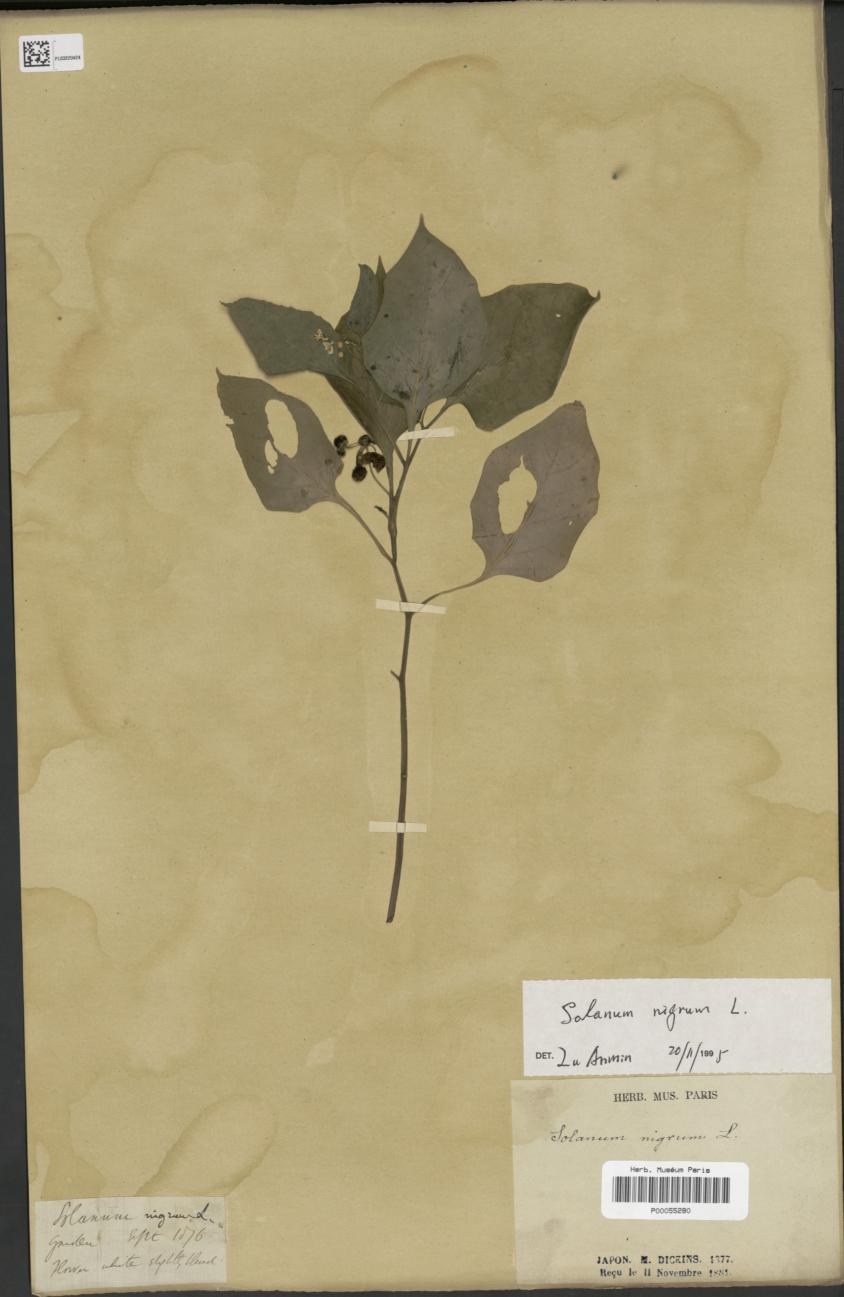 Solanum nigrum L.
DET. Lu Anmin 20/11/1995
HERB. MUS. PARIS
Solanum nigrum L.
Herb. Muséum Paris
P00055280
JAPON. M. DICKINS. 1877.
Reçu le 11 Novembre 1881.
Solanum nigrum L.
Garden Sept 1876
Flower white slightly